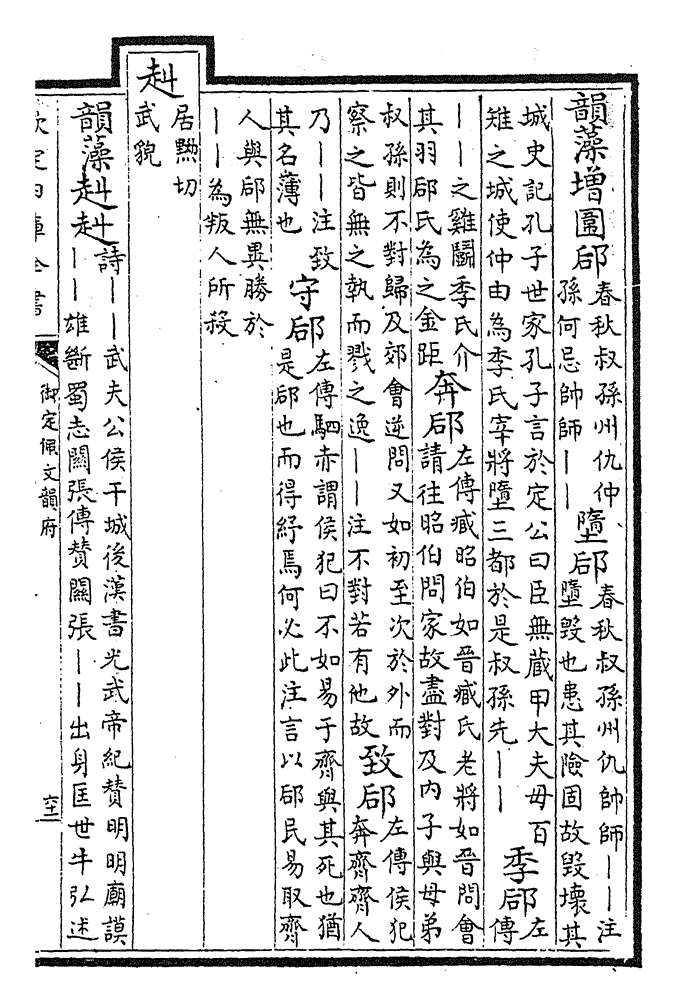 韻藻增圍郈
春秋叔孫州仇仲
孫何忌帥師——
墮郈
春秋叔孫州仇帥師——注
墮毀也患其險固故毀壞其
城史記孔子世家孔子言於定公曰臣無藏甲大夫毋百
雉之城使仲由為季氏宰將墮三都於是叔孫先——
季郈
左
傳
——之雞鬭季氏介
其羽郈氏為之金距
奔郈
左傳臧昭伯如晉臧氏老將如晉問會
請往昭伯問家故盡對及内子與母弟
叔孫則不對歸及郊會逆問又如初至次於外而
察之皆無之執而戮之逸——注不對若有他故
致郈
左傳侯犯
奔齊齊人
乃——注致
其名薄也
守郈
左傳駟赤謂侯犯曰不如易于齊與其死也猶
是郈也而得紓焉何必此注言以郈民易取齊
人與郈無異勝於
——為叛人所殺
赳
居黝切
武貌
韻藻赳赳
詩——武夫公侯干城後漢書光武帝紀賛明明廟謨
——雄斷蜀志關張傳賛關張——出身匡世牛弘述
欽定四庫全書
御定佩文韻府